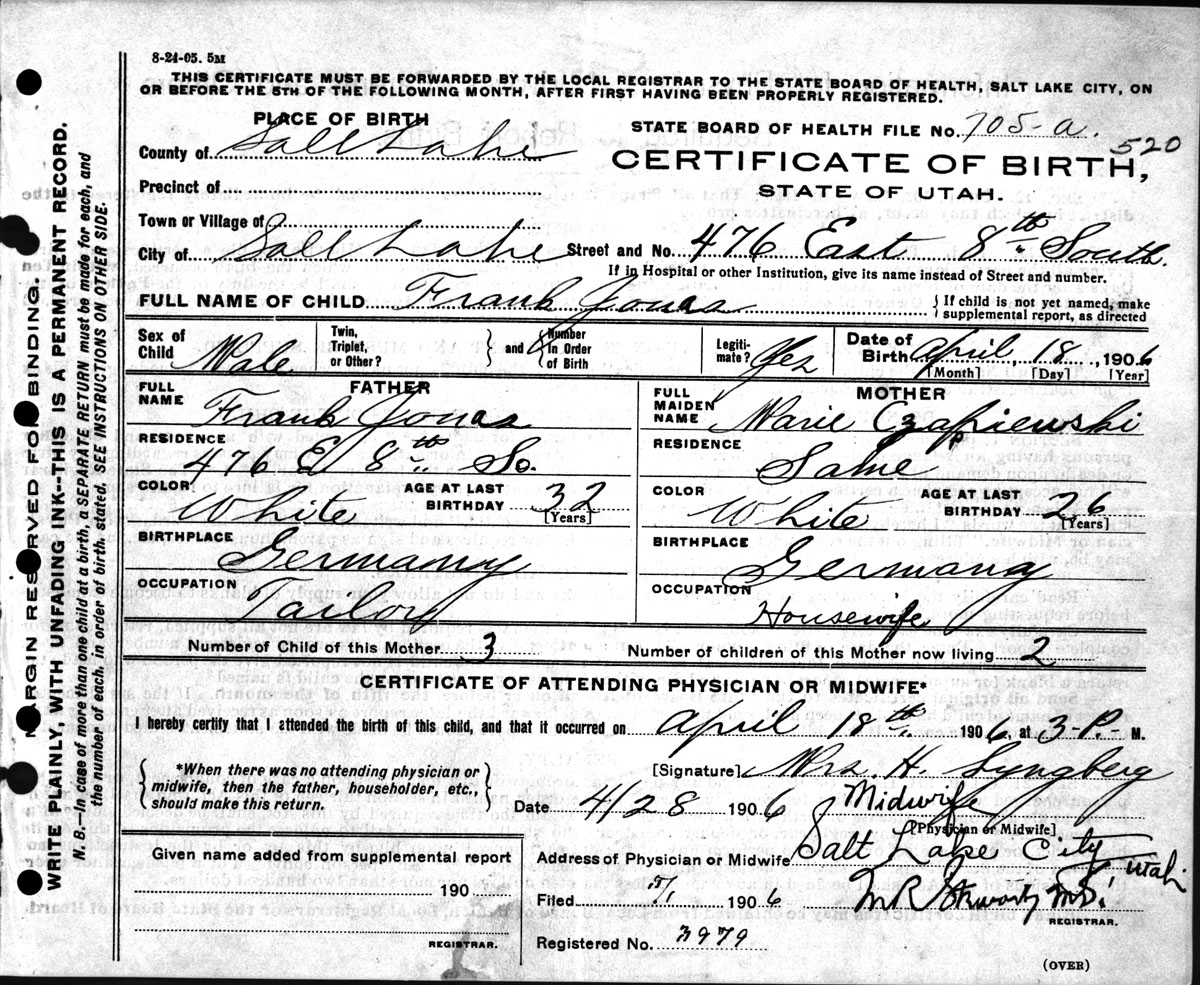 8-24-05. 5M
THIS CERTIFICATE MUST BE FORWARDED BY THE LOCAL REGISTRAR TO THE STATE BOARD OF HEALTH, SALT LAKE CITY, ON
OR BEFORE THE 5TH OF THE FOLLOWING MONTH, AFTER FIRST HAVING BEEN PROPERLY REGISTERED.
MARGIN RESERVED FOR BINDING.
WRITE PLAINLY, WITH UNFADING INK--THIS IS A PERMANENT RECORD.
N. B.--In case of more than one child at a birth, a SEPARATE RETURN must be made for each, and
the number of each, in order of birth, stated. SEE INSTRUCTIONS ON OTHER SIDE.
PLACE OF BIRTH
County of Salt Lake
Precinct of
Town or Village of
City of Salt Lake
STATE BOARD OF HEALTH FILE No. 705-a. 520
CERTIFICATE OF BIRTH,
STATE OF UTAH.
Street and No. 476 East 8th South.
If in Hospital or other Institution, give its name instead of Street and number.
FULL NAME OF CHILD Frank Jonas
If child is not yet named, make
supplemental report, as directed
Sex of Child Male
Twin, Triplet, or Other?
and Number In Order of Birth
Legitimate? Yes
Date of Birth April, 18, 1906
[Month] [Day] [Year]
FATHER
FULL NAME Frank Jonas
RESIDENCE 476 E 8th So.
COLOR White
AGE AT LAST BIRTHDAY 32
[Years]
BIRTHPLACE Germany
OCCUPATION Tailor
MOTHER
FULL MAIDEN NAME Marie Czapiewski
RESIDENCE Same
COLOR White
AGE AT LAST BIRTHDAY 26
[Years]
BIRTHPLACE Germany
OCCUPATION Housewife
Number of Child of this Mother 3
Number of children of this Mother now living 2
CERTIFICATE OF ATTENDING PHYSICIAN OR MIDWIFE*
I hereby certify that I attended the birth of this child, and that it occurred on April 18th 1906, at 3-P.- M.
*When there was no attending physician or
midwife, then the father, householder, etc.,
should make this return.
[Signature] Mrs. H. Syngberg
Date 4/28 1906 Midwife
[Physician or Midwife]
Given name added from supplemental report
190
REGISTRAR.
Address of Physician or Midwife Salt Lake City Utah
Filed 1906
M.D.
REGISTRAR.
Registered No. 3979
(OVER)